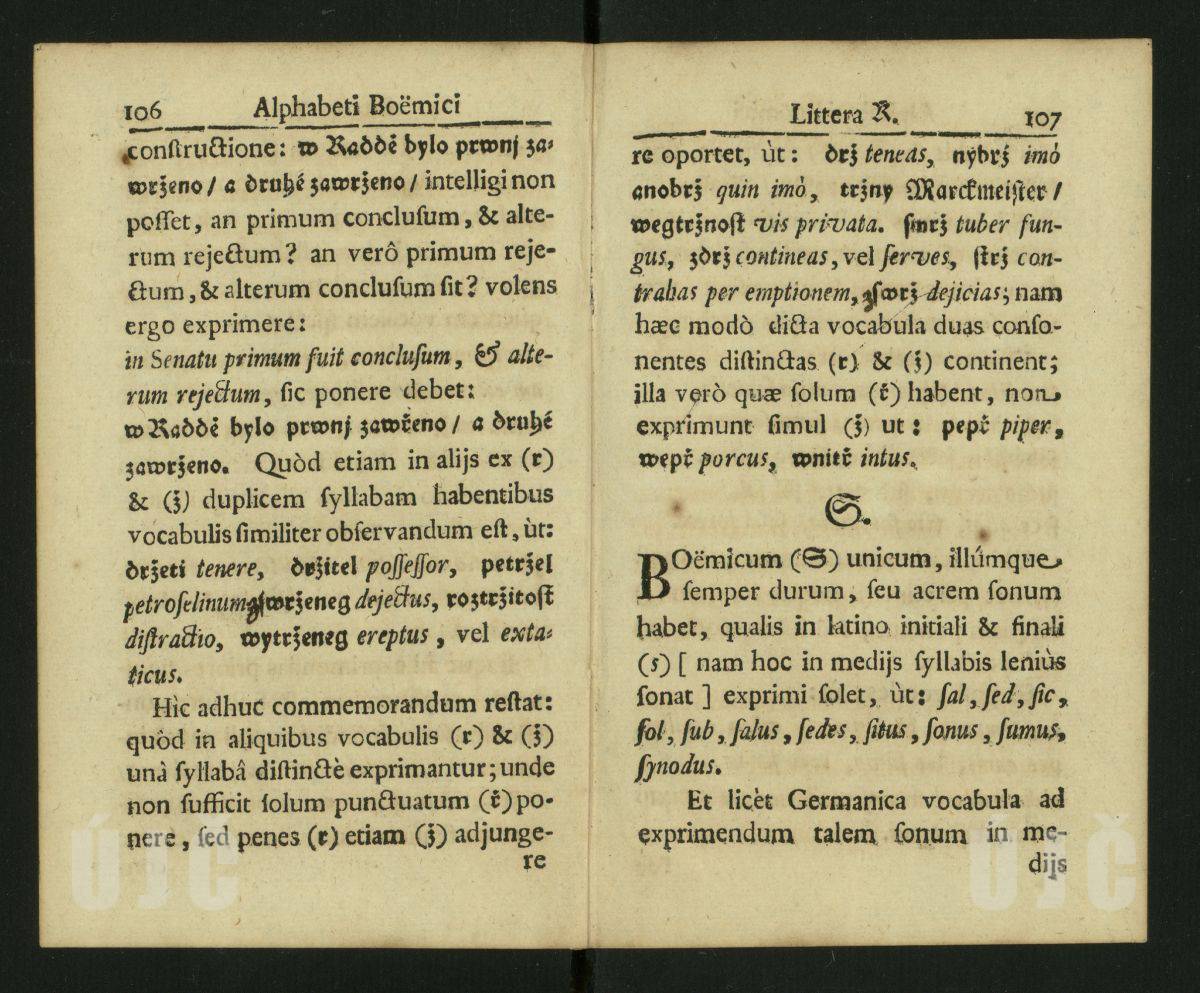 106 Alphabeti Boëmici
conſtructione: w Raddě bylo prwnj za-
wrženo / a druhé zawrženo / intelligi non
poſſet, an primum concluſum, & alte-
rum rejectum? an verô primum reje-
ctum, & alterum concluſum ſit? volens
ergo exprimere:
in Senatu primum fuit concluſum, & alte-
rum rejectum, ſic ponere debet:
w Raddě bylo prwnj zawřeno / a druhé
zawrženo. Quòd etiam in alijs ex (r)
& (ž) duplicem ſyllabam habentibus
vocabulis ſimiliter obſervandum eſt, ùt:
držeti tenere, držitel poſſeſſor, petržel
petroſelinum, ſwrženeg dejectus, roztržitoſt
diſtractio, wytrženeg ereptus, vel exta-
ticus.
Hìc adhuc commemorandum reſtat:
quòd in aliquibus vocabulis (r) & (ž)
unà ſyllabâ diſtinctè exprimantur; unde
non ſufficit ſolum punctuatum (ř) po-
nere, ſed penes (r) etiam (ž) adjunge-
re
Littera R. 107
re oportet, ùt: drž teneas, nýbrž imò
anobrž quin imò, tržny Marckmeiſter /
wegtržnoſt vis privata. ſmrž tuber fun-
gus, zdrž contineas, vel ſerves, ſtrž con-
trahas per emptionem, ſwrž dejicias; nam
hæc modò dicta vocabula duas conſo-
nentes diſtinctas (r) & (ž) continent;
illa verò quæ ſolum (ř) habent, non
exprimunt ſimul (ž) ut: pepř piper,
wepř porcus, wnitř intus.
S.
BOëmicum (S) unicum, illúmque
ſemper durum, ſeu acrem ſonum
habet, qualis in latino initiali & finali
(s) [ nam hoc in medijs ſyllabis leniùs
ſonat ] exprimi ſolet, ùt: ſal, ſed, ſic,
ſol, ſub, ſalus, ſedes, ſitus, ſonus, ſumus,
ſynodus.
Et licèt Germanica vocabula ad
exprimendum talem ſonum in me-
dijs
ÚJČ
ÚJČ